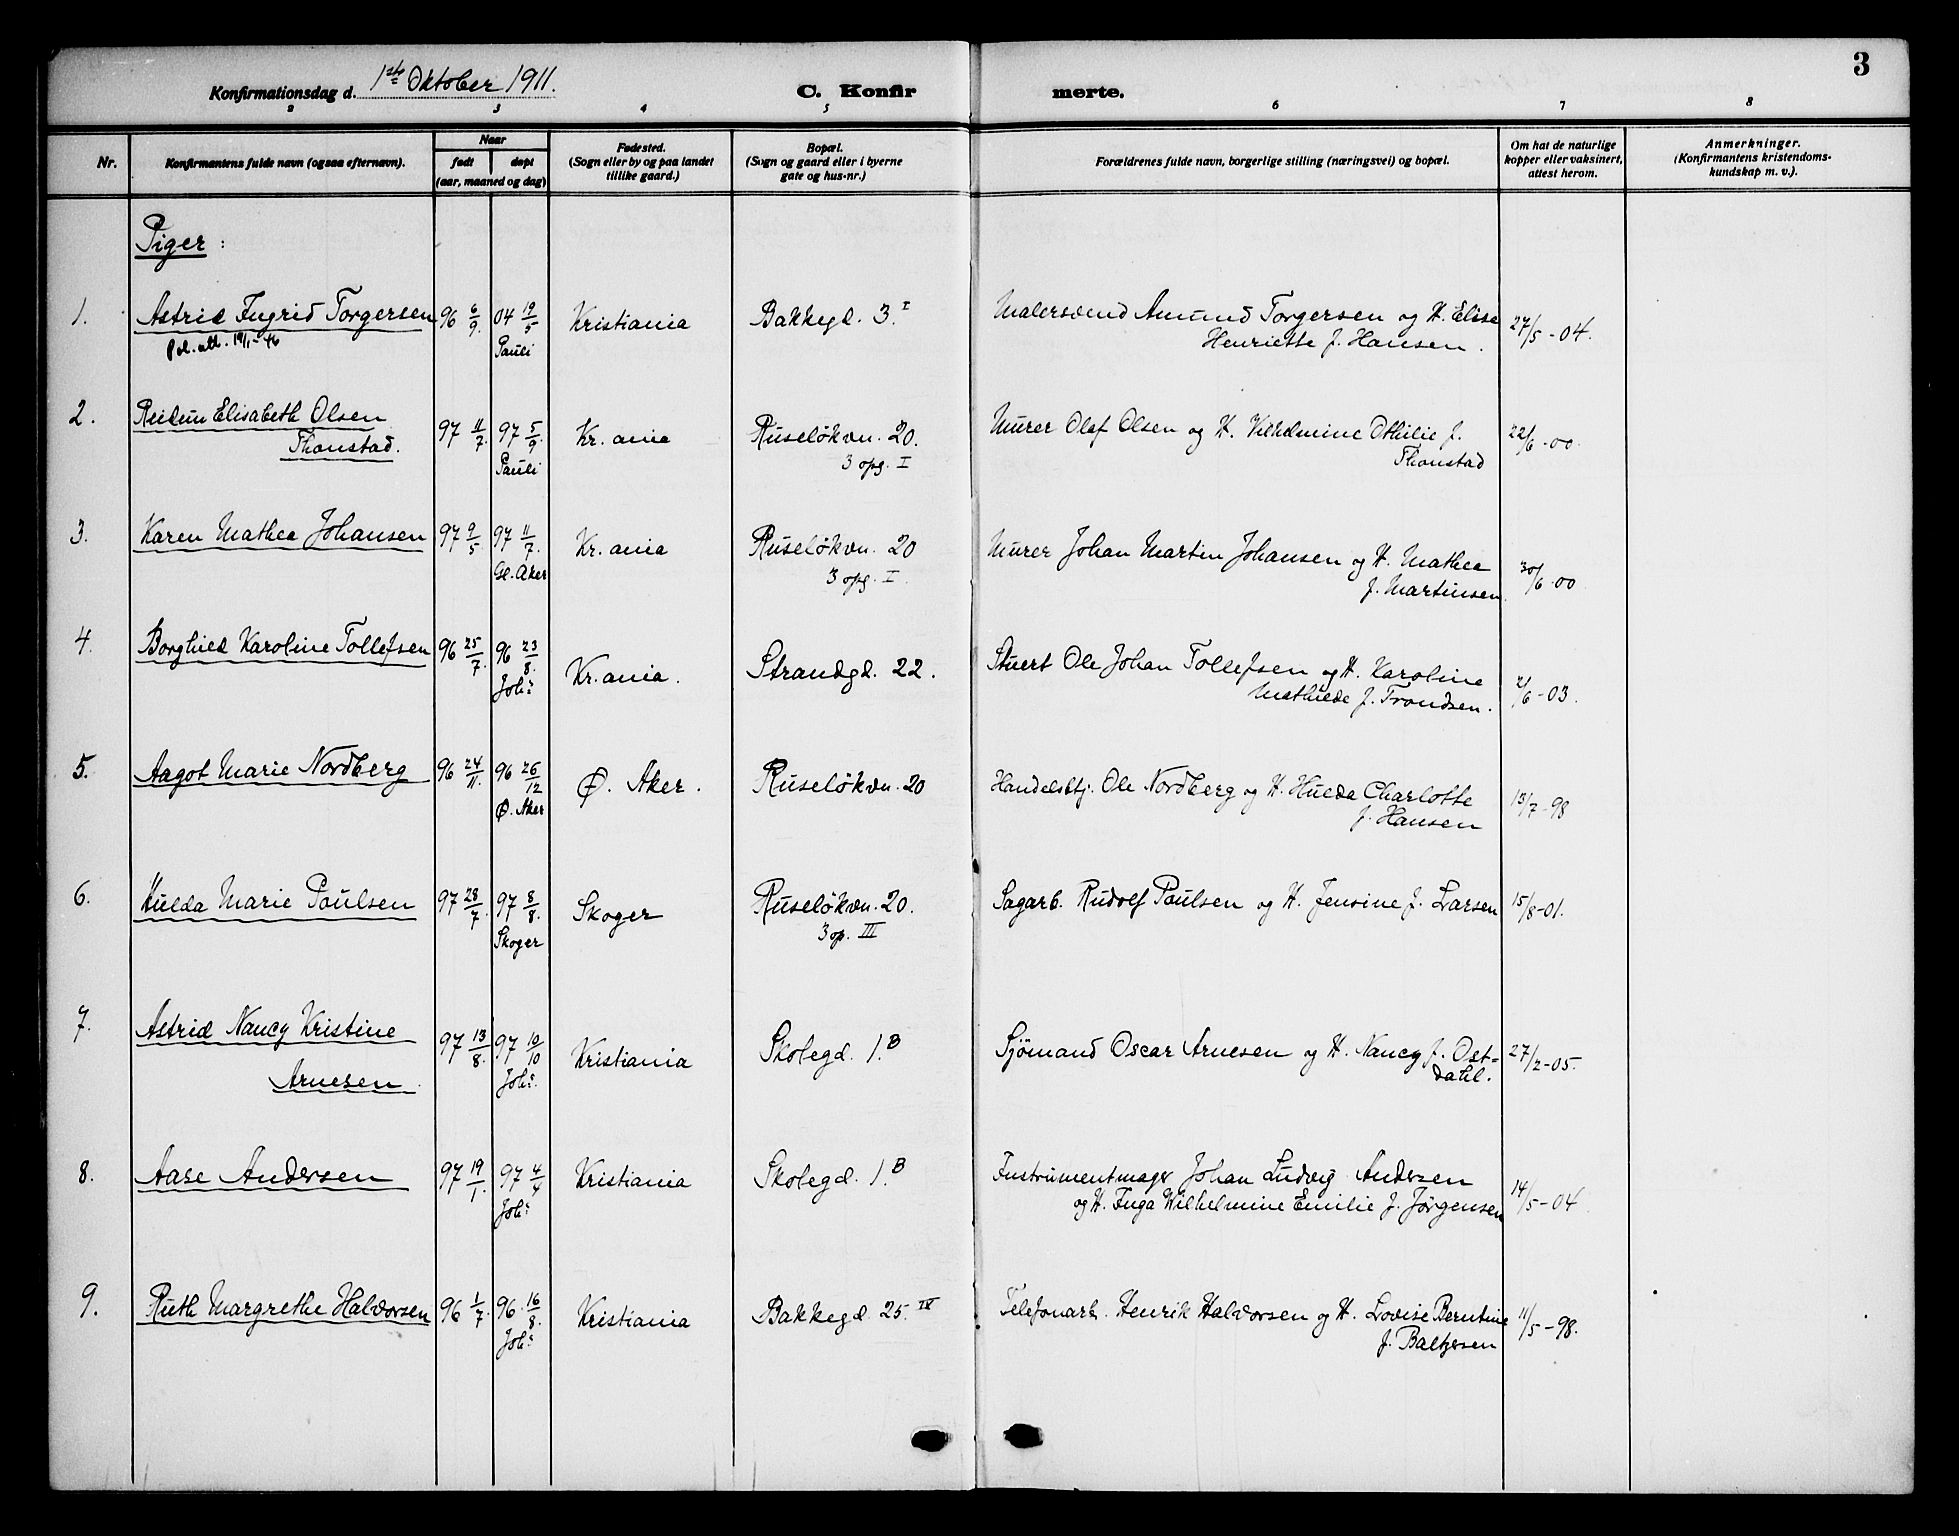 3
Konfirmationsdag d. 1ste Oktober 1911.
C. Konfirmerte.
2 3 4 5 6 7 8
Nr.
Konfirmantens fulde navn (ogsaa efternavn).
Naar
født døpt
(aar, maaned og dag)
Fødested.
(Sogn eller by og paa landet
tillike gaard.)
Bopæl.
(Sogn og gaard eller i byerne
gate og hus-nr.)
Forældrenes fulde navn, borgerlige stilling (næringsvei) og bopæl.
Om hat de naturlige
kopper eller vaksinert,
attest herom.
Anmerkninger.
(Konfirmantens kristendoms-
kundskap m. v.).
Piger:
1. Astrid Ingrid Torgersen 96 6/9. 04 19/5 Kristiania Bakkegd. 3.I Malersvend Amund Torgersen og H. Elise 27/5-04.
Pol. att. 19/1-46 Pauli Henriette f. Hansen.
2. Reidun Elisabeth Olsen 97 11/7. 97 5/9. Kr.ania Ruseløkvn. 20. Murer Olaf Olsen og H. Vilhelmine Othilie f. 22/6-00.
Thonstad. Pauli 3 opg. I Thonstad
3. Karen Mathea Johansen 97 9/5. 97 11/7. Kr.ania Ruseløkvn. 20 Murer Johan Martin Johansen og H. Mathea 30/6-00
Gl. Aker 3 opg. I. f. Martinsen.
4. Borghild Karoline Tollefsen 96 25/7. 96 23/8. Kr.ania. Strandgd. 22. Stuert Ole Johan Tollefsen og H. Karoline 2/6-03.
Joh.s Mathilde f. Trondsen.
5. Aagot Marie Nordberg 96 24/11. 96 26/12 Ø. Aker. Ruseløkvn. 20 Handelsbtj. Ole Nordberg og H. Hulda Charlotte 13/7-98
Ø. Aker f. Hansen
6. Hulda Marie Poulsen 97 28/7. 97 8/8. Skoger Ruseløkvn. 20. Sagarb. Rudolf Poulsen og H. Jensine f. Larsen 15/8-01.
Skoger 3 op. III
7. Astrid Nancy Kristine 97 13/8. 97 10/10 Kristiania Skolegd. 1.B Sjømand Oscar Arnesen og H. Nancy f. Ost- 27/2-05.
Arnesen. Joh.s dahl.
8. Aase Andersen 97 19/1. 97 4/4 Kristiania Skolegd. 1.B Instrumentmager Johan Ludvig Andersen 14/5-04
Joh.s og H. Inga Wilhelmine Emilie f. Jørgensen
9. Ruth Margrethe Halvorsen 96 1/7. 96. 16/8. Kristiania Bakkegd. 25.IV Telefonarb. Henrik Halvorsen og H. Lovise Berntine 11/5-98.
Joh.s f. Baltzersen